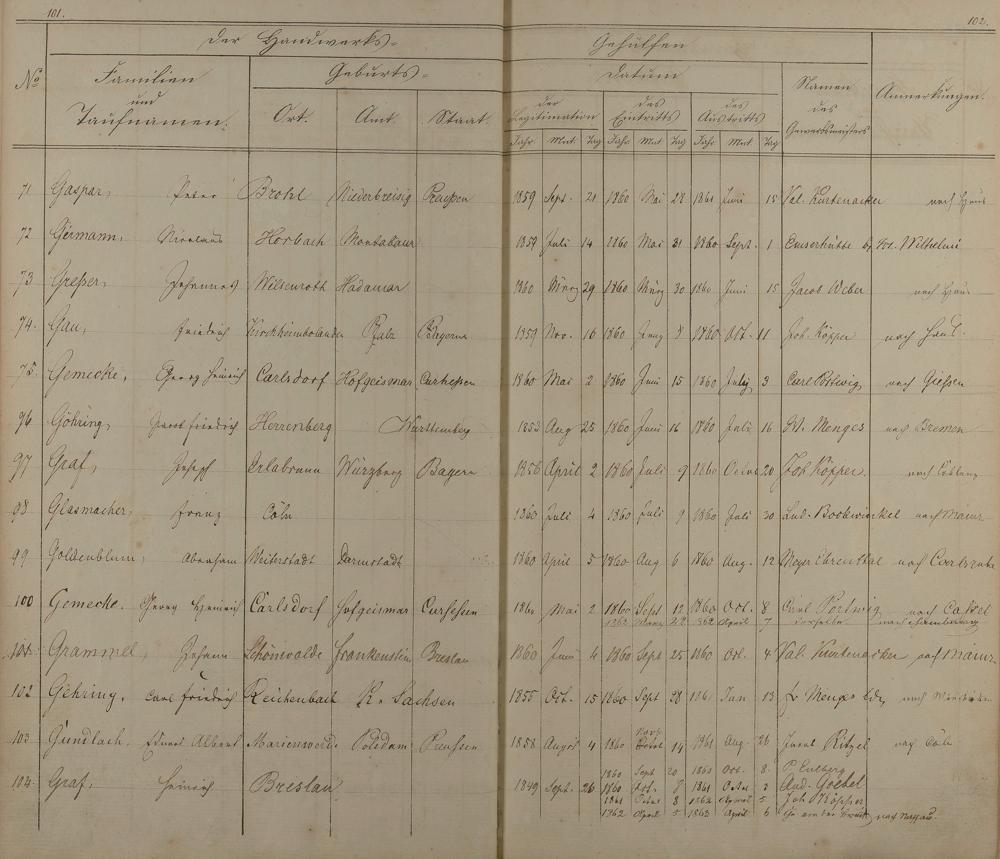 101. 102.
Der Handwerks- Gehülfen
No Familien und Taufnamen. Geburts- Datum Namen des Gewerbsmeisters Anmerkungen.
Ort. Amt. Staat. der Legitimation des Eintritts des Austritts
Jahr Mnt. Tag Jahr Mnt Tag Jahr Mnt Tag
71 Gaspar, Peter Brohl Niederbreisig Preussen 1859 Sept. 21 1860 Mai 28 1861 Juni 15 Val. Kurtenacker nach Haus
72 Germann, Nicolaus Horbach Montabaur 1859 Juli 14 1860 Mai 31 1860 Sept. 1 Emserhütte by Wilhelmi
73 Greßer, Johannes Wilsenroth Hadamar 1860 März 29 1860 März 30 1860 Juni 15 Jacob Weber nach Haus
74. Gau, Friedrich Kirchheimbolanden Pfalz Bayern 1859 Nov. 16 1860 8 1860 Oct. 11 Joh. Köpper nach
75 Gemecke, Georg Heinrich Carlsdorf Hofgeismar Curhessen 1860 Mai 2 1860 Juni 15 1860 July 3 Carl Portwig nach Gießen
96 Göhring, Friedrich Herrenberg Württemberg 1853 Aug 25 1860 Juni 16 1860 Juli 16 W. Menges nach Bremen
97 Graf, Joseph Erlabrunn Würzberg Bayern 1856 April 2 1860 Juli 9 1860 20 Joh Köpper. nach Coblenz
98 Glasmacher, Franz Cöln 1860 Juli 4 1860 Juli 9 1860 Juli 30 Lud. Bockwinkel nach Mainz
99 Goldenblum, Abraham Weiterstadt Darmstadt 1860 April 5 1860 Aug 6 1860 Aug. 12 Meyer Ehrenthal nach Carlsruhe
100 Gemecke. Georg Heinrich Carlsdorf Hofgeismar Curhessen 1860 Mai 2 1860 Sept 12 1860 Oct. 8 Carl Portwig nach Cassel
1862 März 22 1862 April 7 derselbe nach Hamburg
101 Grammel, Johann Schönwalde Frankenstein Breslau 1860 Juni 4 1860 Sept 25 1860 Oct. 4 Val. Kurtenacker nach Mainz
102 Gehring, Carl Friedrich Reichenbach K. Sachsen 1855 Oct. 15 1860 Sept 28 1861 Jan 13 Menges nach
103 Gundlach. Albert Potsdam Preußen 1858 August 4 1860 14 1861 Aug. 26 Ritzel nach Cöln
104 Graf, Heinrich Breslau 1849 Sept. 26 1860 Sept 20 1860 Oct. 8.
1860 Oct. 8 1861 And. Goebel
1861 8 1862 5 Joh Köpper
1862 April 5 1863 April 6 nach Nassau.